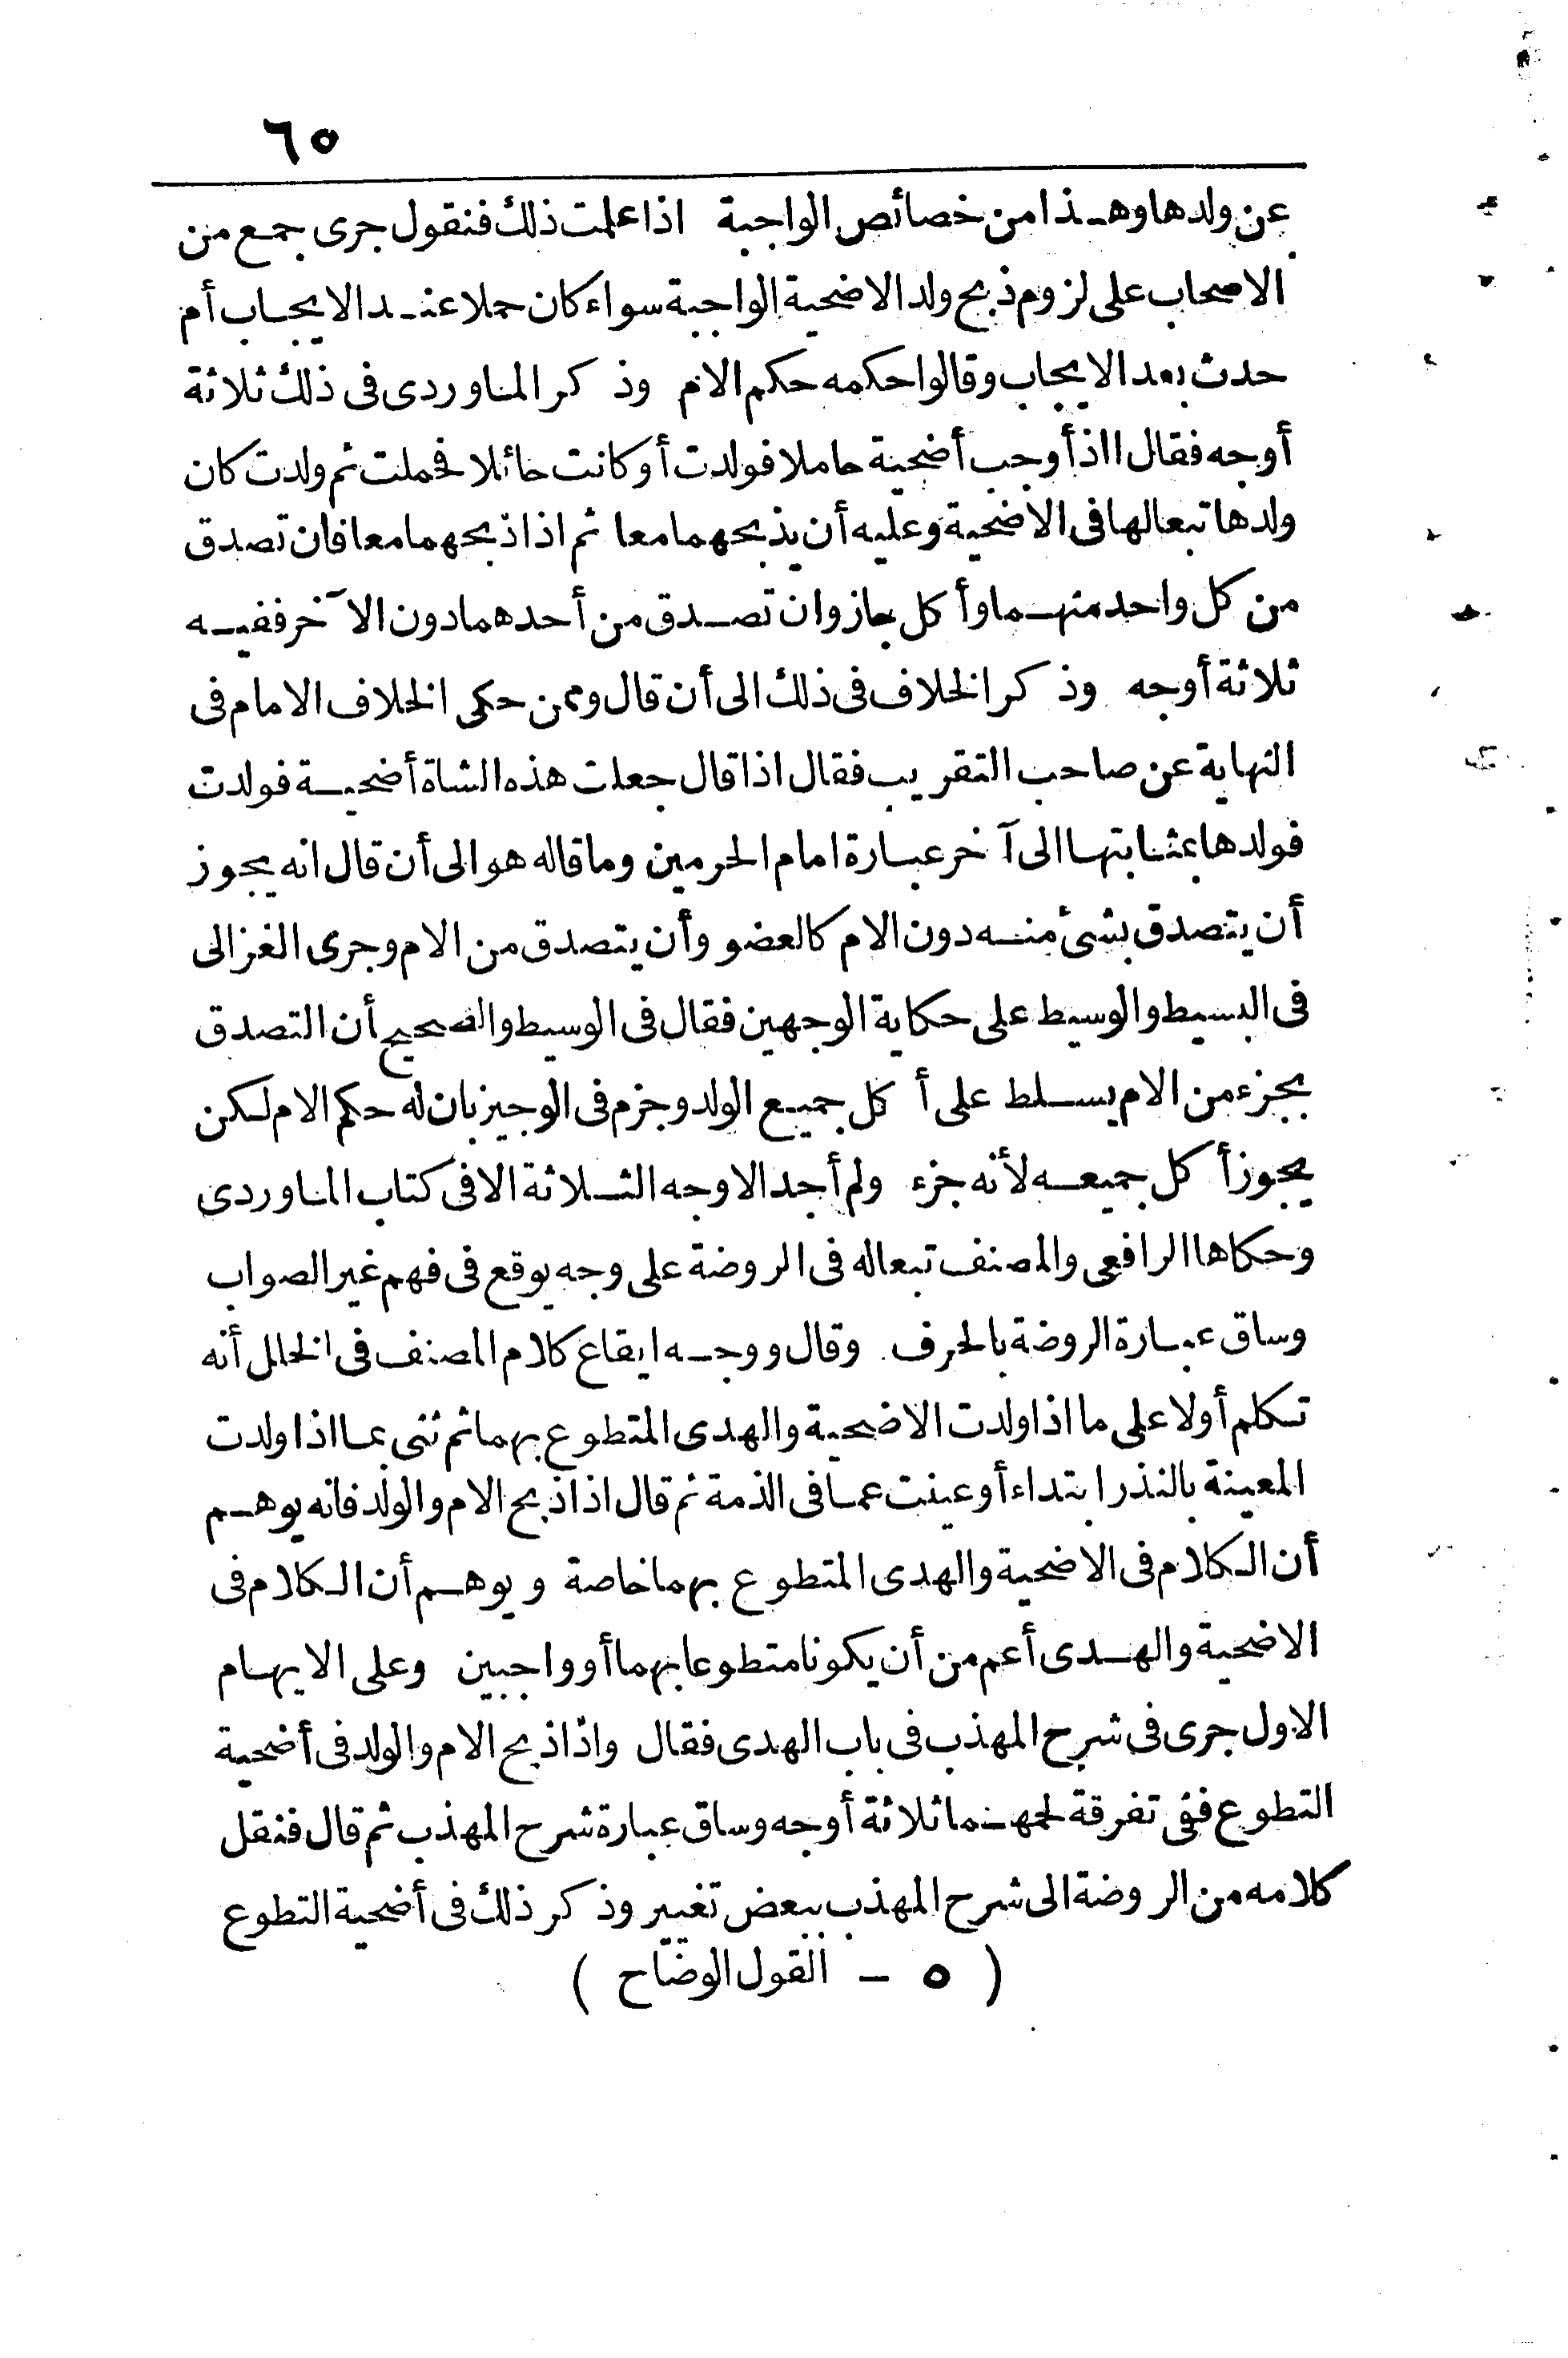 ٦٥
عن ولدها وهـذا من خصائص الواجبة اذا علمت ذلك فنقول جرى جمع من
الاصحاب على لزوم ذبح ولد الاضحية الواجبة سواء كان حملا عنـد الايجاب أم
حدث بعد الايجاب وقالوا حكمه حكم الام وذكر الماوردى فى ذلك ثلاثة
أوجه فقال ااذ أوجب أضحية حاملا فولدت أو كانت حائلا فحملت ثم ولدت كان
ولدها تبعا لها فى الاضحية وعليه أن يذبحهما معا ثم اذا ذبحهما معا فان تصدق
من كل واحد منهـما وأكل جاز وان تصـدق من أحدهما دون الآخر ففيـه
ثلاثة أوجه وذكر الخلاف فى ذلك الى أن قال وممن حكى الخلاف الامام فى
النهاية عن صاحب التقريب فقال اذا قال جعلت هذه الشاة أضحيـة فولدت
فولدها بمثابتها الى آخر عبارة امام الحرمين وما قاله هو الى أن قال انه يجوز
أن يتصدق بشئ منـه دون الام كالعضو وأن يتصدق من الام وجرى الغزالى
فى البسيط والوسيط على حكاية الوجهين فقال فى الوسيط والصحيح أن التصدق
بجزء من الام يسـلط على أكل جميع الولد وجزم فى الوجيز بان له حكم الام لكن
يجوز أكل جميعـه لأنه جزء ولم أجد الاوجه الثـلاثة الا فى كتاب الماوردى
وحكاها الرافعى والمصنف تبعا له فى الروضة على وجه يوقع فى فهم غير الصواب
وساق عبارة الروضة بالحرف وقال ووجـه ايقاع كلام المصنف فى الخلل أنه
تكلم أولا على ما اذا ولدت الاضحية والهدى المتطوع بهما ثم ثنى بما اذا ولدت
المعينة بالنذر ابتداء أو عينت عما فى الذمة ثم قال اذا ذبح الام والولد فانه يوهـم
أن الكلام فى الاضحية والهدى المتطوع بهما خاصة ويوهـم أن الكلام فى
الاضحية والهـدى أعم من أن يكونا متطوعا بهما أو واجبين وعلى الايهـام
الاول جرى فى شرح المهذب فى باب الهدى فقال واذا ذبح الام والولد فى أضحية
التطوع ففى تفرقة لحمهـما ثلاثة أوجه وساق عبارة شرح المهذب ثم قال فنقل
كلامه من الروضة الى شرح المهذب ببعض تغيير وذكر ذلك فى أضحية التطوع
( ٥ – القول الوضاح )